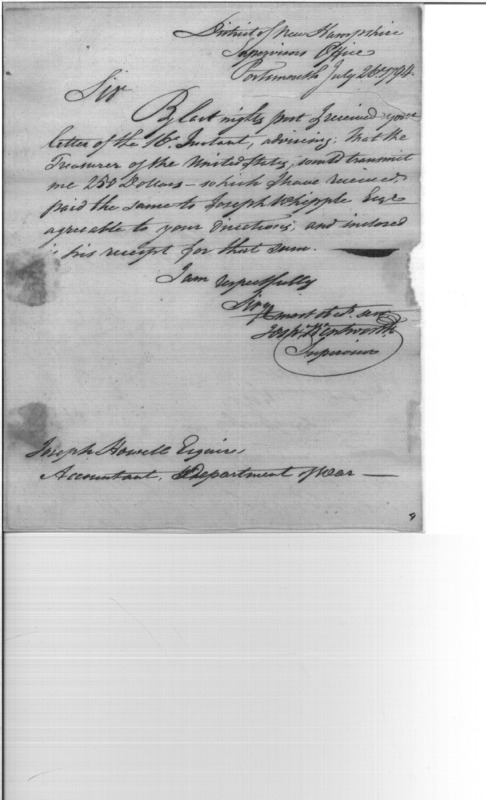 District of New Hampshire
Supervisors Office
Portsmouth July 26. 1794.
Sir
By last nights post I received your
letter of the 16th. Instant, advising, that the
Treasurer of the United States, would transmit
me 250 Dollars – which I have received,
paid the same to Joseph Whipple Esqr
agreable to your directions, and inclosed
is his receipt for that sum.
I am respectfully
Sir
most obt. ser
Wentworth
Supervisor
Joseph Howell Esquire,
Accountant, Department of War —